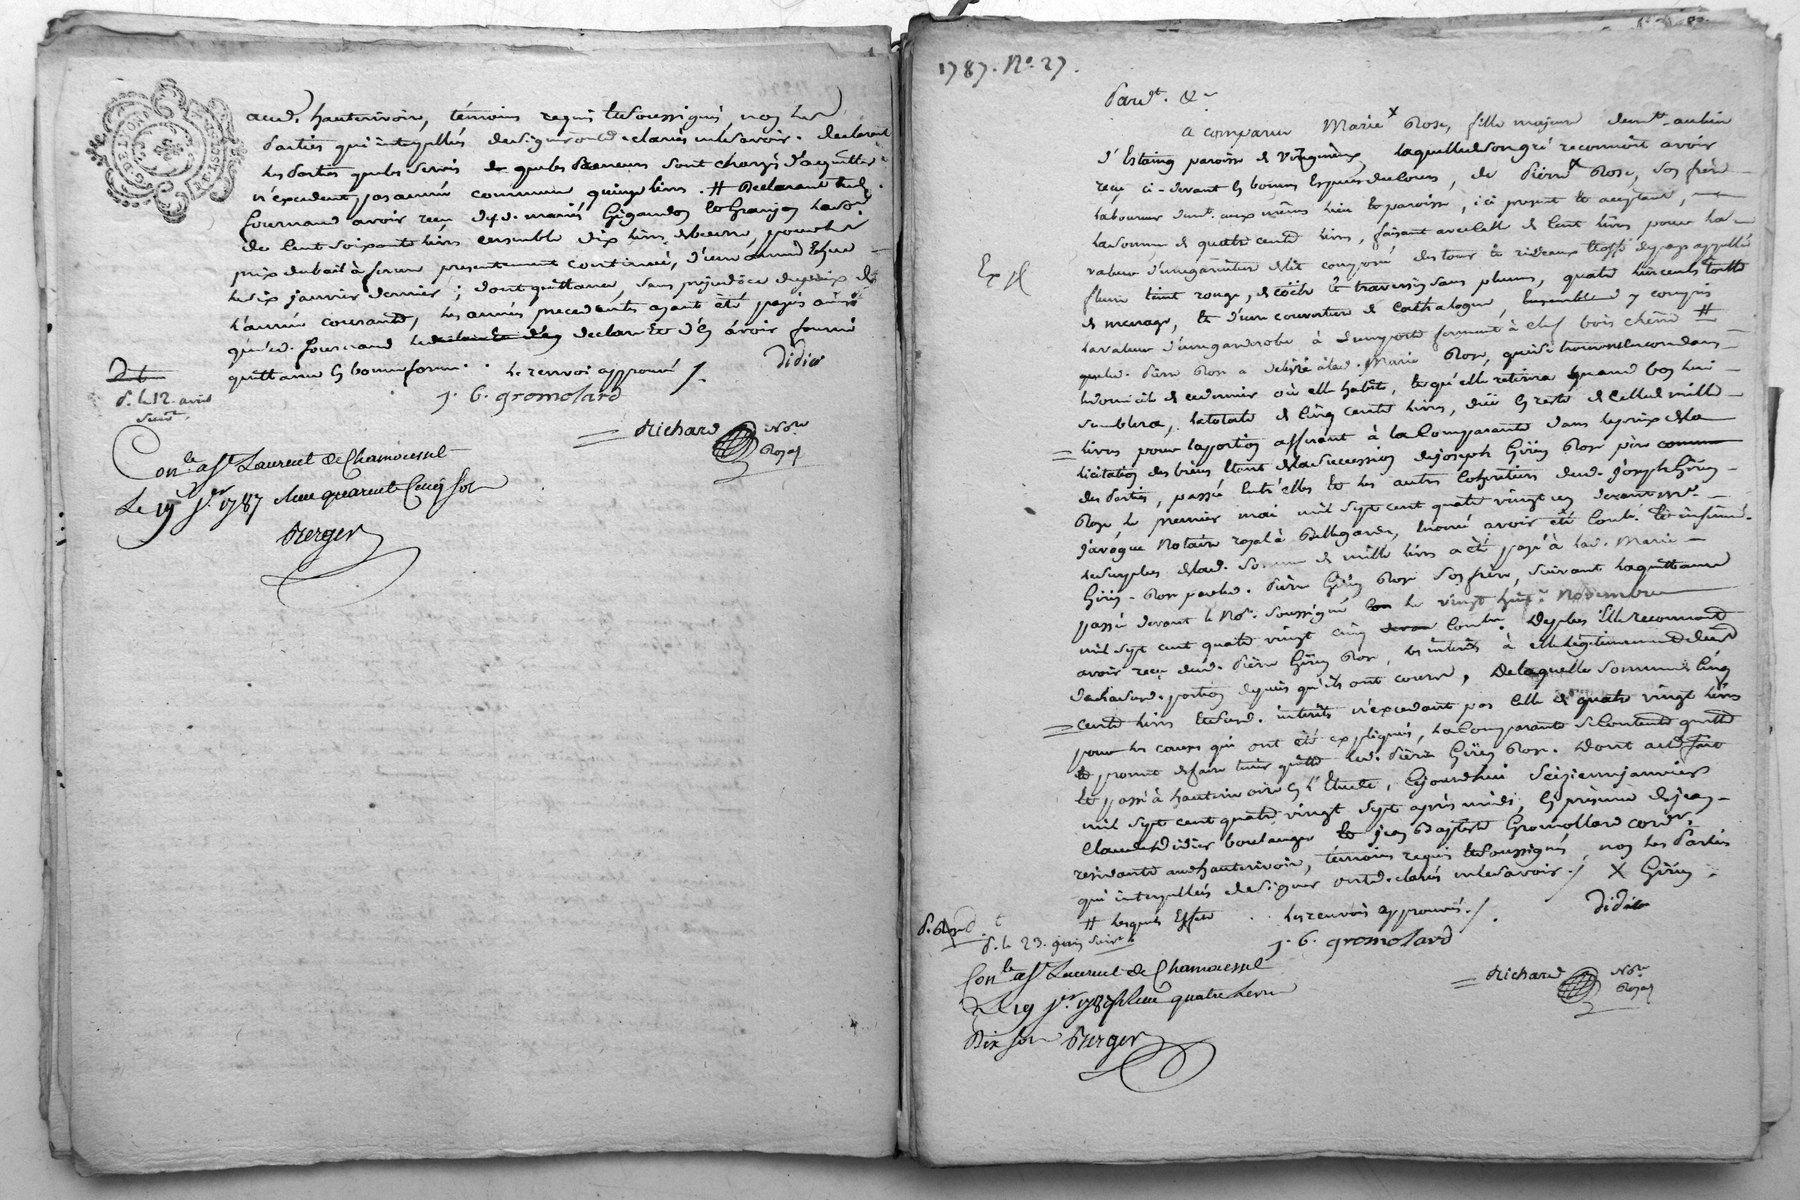 aud. hauterivoire, témoins requis et soussignés, non les
parties qui interpellés de signer ont declarés ne le savoir. Declarent
les parties que les servis de que les preneurs sont chargés d'acquitter
n'excedent pas année commune quinze livres. # Declarant led.
fournand avoir reçu desd. mariés Gigandon et Granjon la so.e
de cent soixante livres ensemble dix livres de beurre, pour le
prix du bail à ferme presentement continué, d'une année echue
le six janvier dernier; dont quittance, sans prejudice du prix de
l'année courante, les années precedentes ayant été payés ainsi
qu'led. fournand le declare et d'en avoir fourni
quittance en bonne forme. . le renvoi approuvé /.
Didier
J. B. gromolard
P. le 12. avril
suivt.
Richard Nore
Royal
Conlé à St Laurent de Chamousset
Le 19 Jer 1787 Reçu quarante cinq sols
Berger
1787. No. 27.
Pardt. &c
a comparu Marie x Rose, fille majeure demte. au lieu
d'Estaing paroisse de Virigneux laquelle de son gré reconnoit avoir
reçu ci-devant en bonnes especes de cours, de Pierre x Rose, son frère
laboureur demt. aux mêmes lieu et paroisse, ici present et acceptant,
la somme de quatre cents livres, faisant avec celle de cent livres pour la
valeur d'une garniture de lit composé des tour et rideaux etoffe du pays appellée
Exp
fleuré teint rouge, de coëte et traversin sans plume, quatre linceuls toille
de menage, et d'une couverture de Cathalogne, ensemble y compris
la valeur d'une garderobe à une porte fermant à clef bois chêne #
que led. Pierre Rose a delivré à lad. Marie Rose, qui se trouvent encore dans
le domicile de ce dernier où elle habite, et qu'elle retirera quand bon lui
semblera, la totale de cinq cents livres, duë en reste de celle de mille
livres pour la portion afferant à la comparante dans le prix de la
licitation des biens etant de la succession de joseph Gërin Rose père commun
des parties, passée entr'elles et les autres cohéritiers dud. joseph Gërin
Rose le premier mai mil sept cent quatre vingt un devant Me.
javogue Notaire royal à Bellegarde, enoncé avoir été contlé. et insinué.
le surplus de lad. somme de mille livres a été payé à lad. Marie
Gërin-Rose par led. Pierre Gërin Rose son frère, suivant la quittance
passée devant le Nore. soussigné le vingt huit Novembre
mil sept cent quatre vingt cinq contlée. De plus elle reconnoit
avoir reçu dud. Pierre Gërin Rose, les intérêts à elle legitimement dûs
de sad. portion depuis qu'ils ont couru, de laquelle somme de cinq
cents livres et desd. intérêts n'excedant pas celle de quatre vingt livres
pour les causes qui ont été expliqués, la comparante se contente quitte
et promet de faire tenir quitte led. Pierre Gërin Rose. Dont acte fait
et passé à hauterivoire en l'Etude, cejourd'hui seizieme janvier
mil sept cent quatre vingt sept après midi, en presence de jean
Claude Didier boulanger et jean Baptiste Gromollard cordr.
residants aud. hauterivoire, témoins requis et soussignés, non les parties
qui interpellés de signer ont declarés ne le savoir. / X Gërin
# lesquels Effets . . les renvois approuvés. /.
Didier
P. le 23. juin suivt.
J. B. gromolard
Conlé à St Laurent de Chamousset
Le 19 Jer. 1787 Reçu quatre livres
Dix sols Berger
Richard Nore
Royal